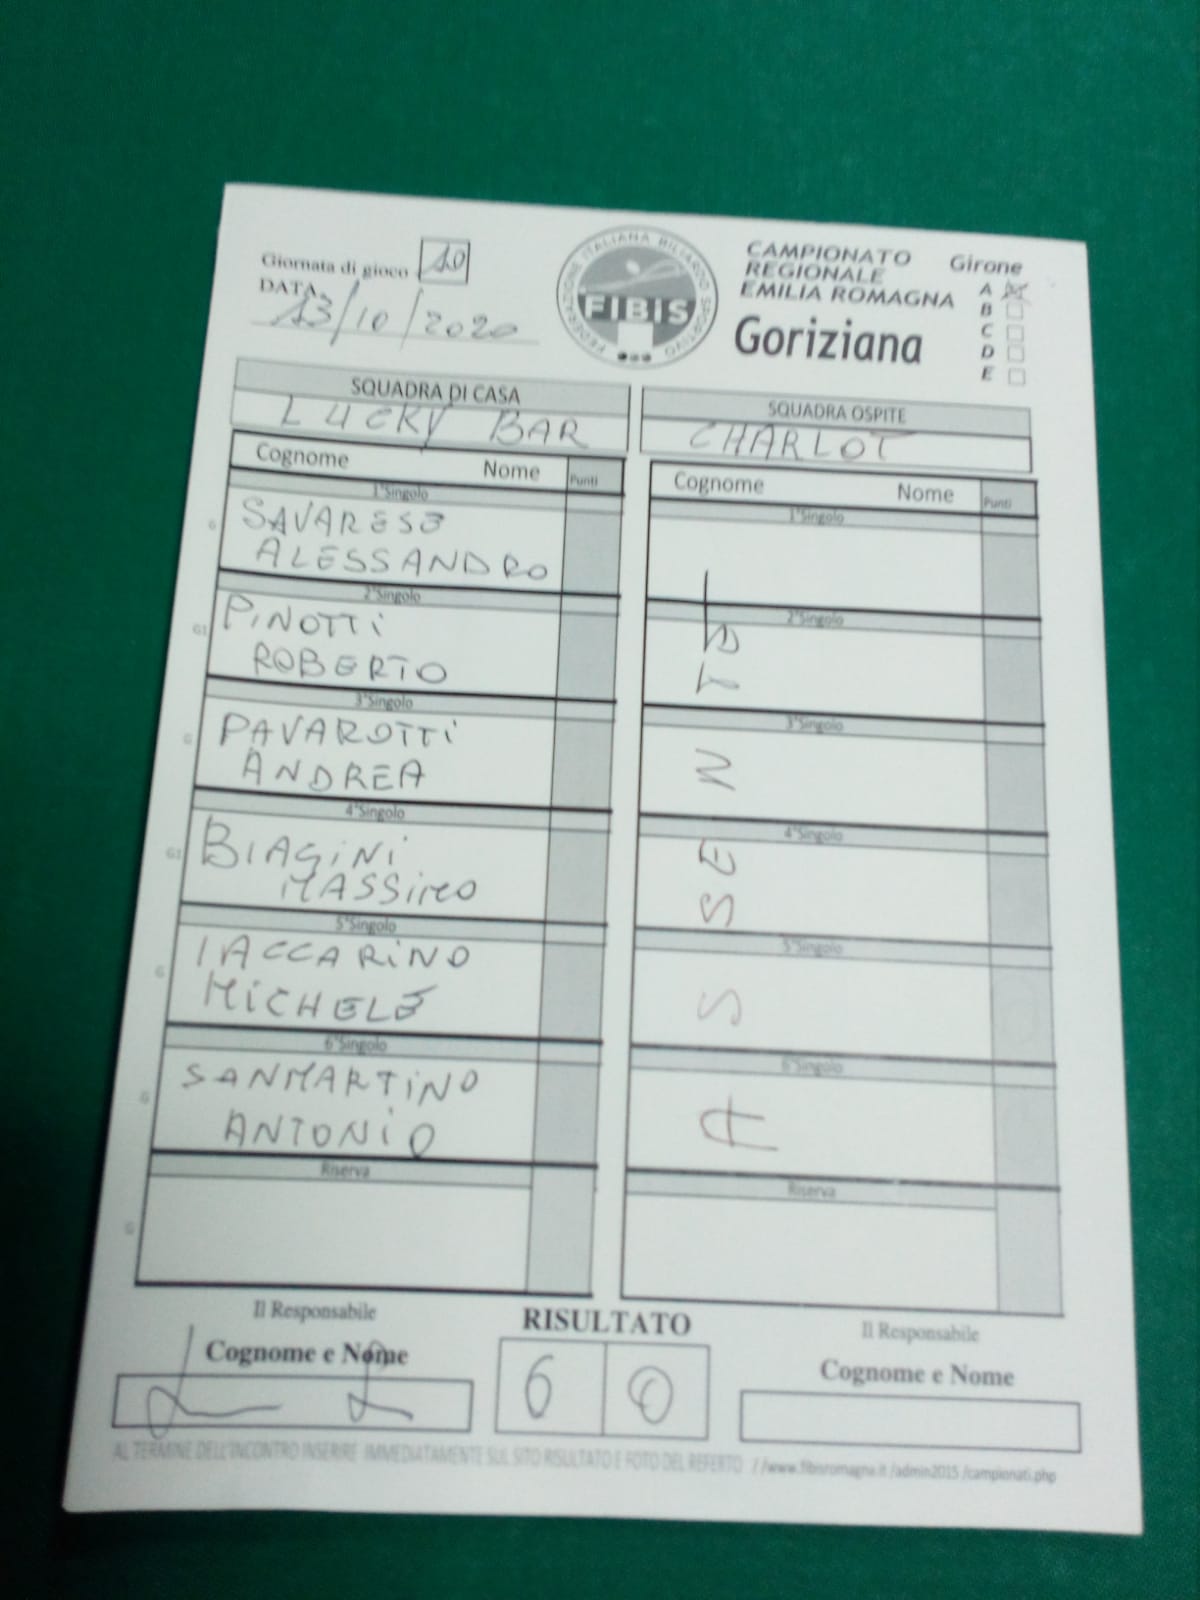 Giornata di gioco 10
DATA
13/10/2020
FEDERAZIONE ITALIANA BILIARDO SPORTIVO
FIBIS
CAMPIONATO
REGIONALE
EMILIA ROMAGNA
Goriziana
Girone
A
B
C
D
E
SQUADRA DI CASA
LUCKY BAR
Cognome Nome Punti
1°Singolo
G SAVARESE
ALESSANDRO
2°Singolo
G1 PINOTTI
ROBERTO
3°Singolo
G PAVAROTTI
ANDREA
4°Singolo
G1 BIAGINI
MASSIMO
5°Singolo
G IACCARINO
MICHELE
6°Singolo
G SANMARTINO
ANTONIO
Riserva
G
SQUADRA OSPITE
CHARLOT
Cognome Nome Punti
1°Singolo
2°Singolo
3°Singolo
4°Singolo
5°Singolo
6°Singolo
Riserva
Il Responsabile
Cognome e Nome
RISULTATO
6 0
Il Responsabile
Cognome e Nome
AL TERMINE DELL'INCONTRO INSERIRE IMMEDIATAMENTE SUL SITO RISULTATO E FOTO DEL REFERTO //www.fibisromagna.it /admin2015 /campionati.php